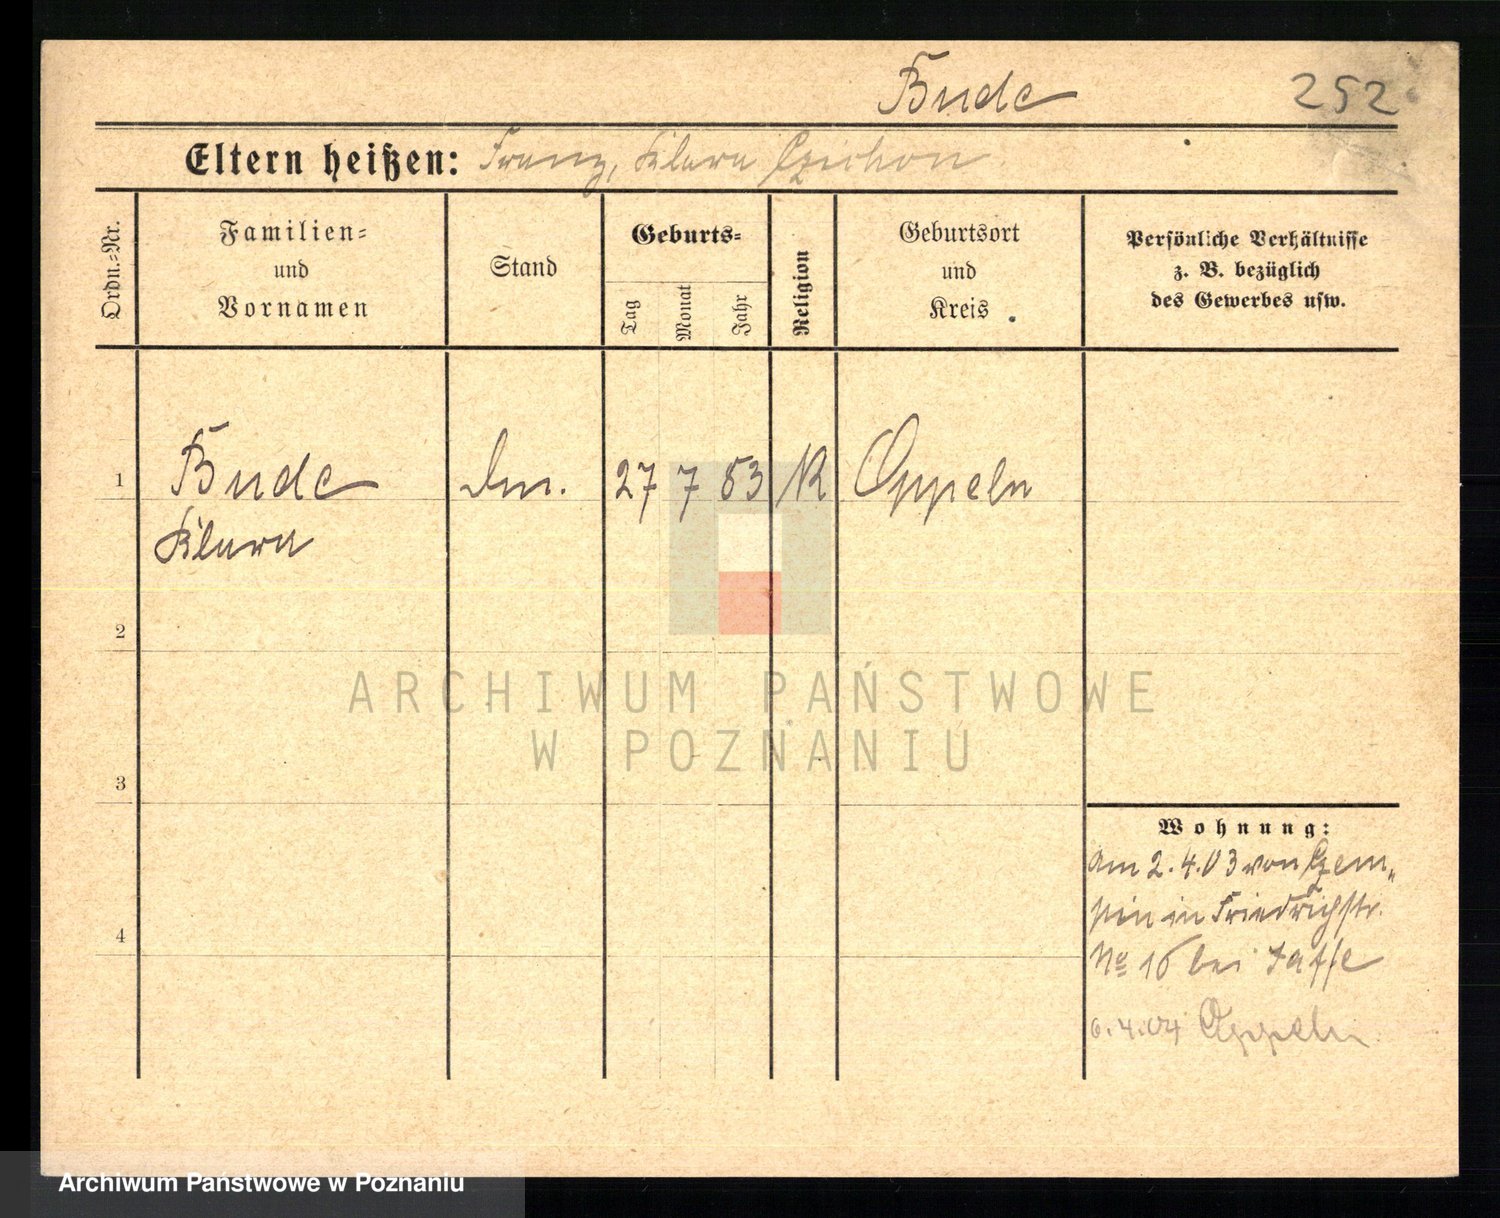 Bude 252
Eltern heißen: Franz, Klara Czichon
Ordn.=Nr.
Familien=
und
Vornamen
Stand
Geburts=
Tag
Monat
Jahr
Religion
Geburtsort
und
Kreis
Persönliche Verhältnisse
z. B. bezüglich
des Gewerbes usw.
1 Bude 27 7 83 K Oppeln
Klara
2
ARCHIWUM PAŃSTWOWE
W POZNANIU
3
Wohnung:
am 2.4.03 von Czem„
pin in Friedrichstr.
4
No 16 bei Jaffe
6.4.04 Oppeln
Archiwum Państwowe w Poznaniu